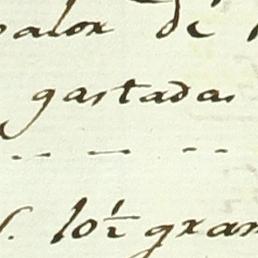 valor de
gastadas
- - - - -
10½ gran